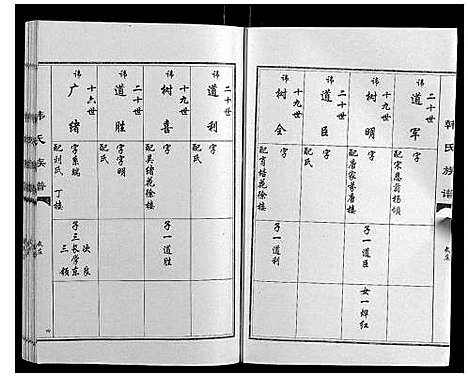 韩氏族谱
二十世
讳 道军
字
配宋恩翁杨领
十九世
讳 树明
字
配唐家茅唐楼
子一道臣
女一烨红
二十世
讳 道臣
字
配氏
十九世
讳 树全
字
配肖结花徐楼
子一道利
二十世
讳 道利
字
配氏
十九世
讳 树喜
字
配吴绪花徐楼
子一道胜
二十世
讳 道胜
字 字明
配氏
十六世
讳 广绪
字系端
配刘氏 丁楼
子三长学东
次良
三领
韩氏族谱